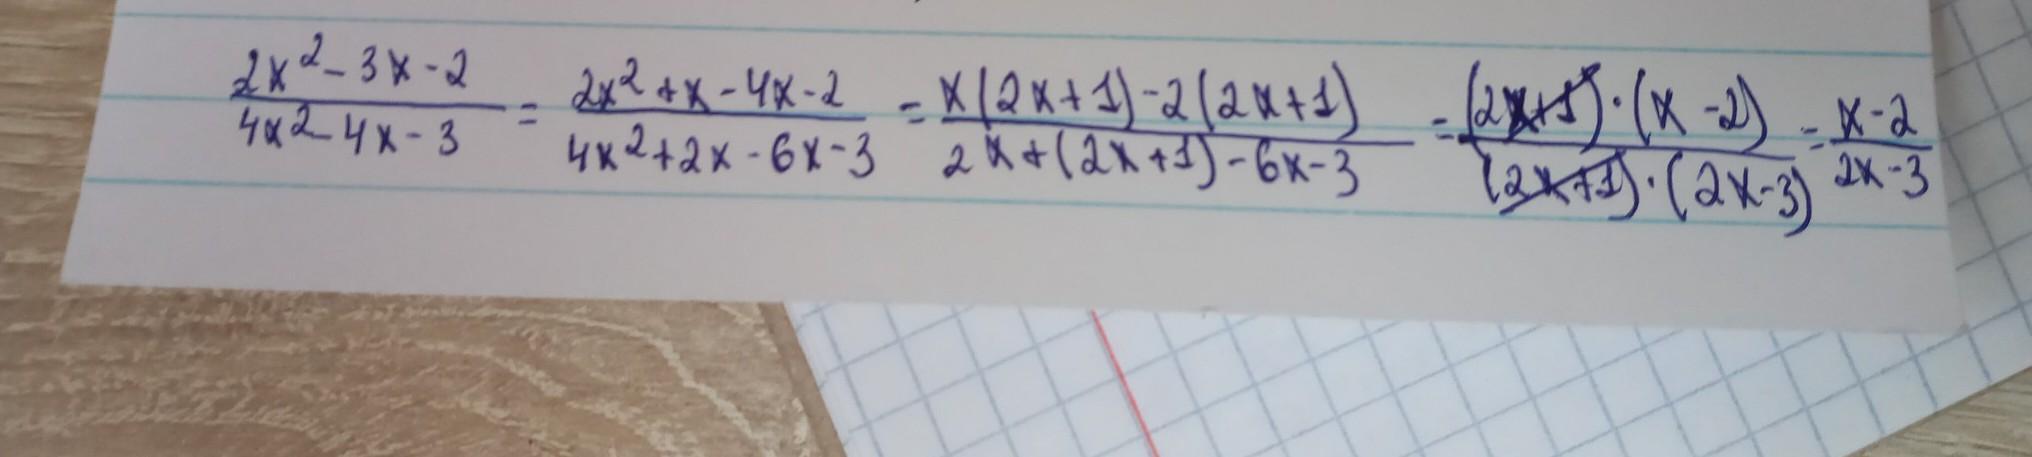 (2x²-3x-2)/(4x²-4x-3) = (2x²+x-4x-2)/(4x²+2x-6x-3) = (x(2x+1)-2(2x+1))/(2x+(2x+1)-6x-3) = ((2x+1)·(x-2))/((2x+1)·(2x-3)) = (x-2)/(2x-3)